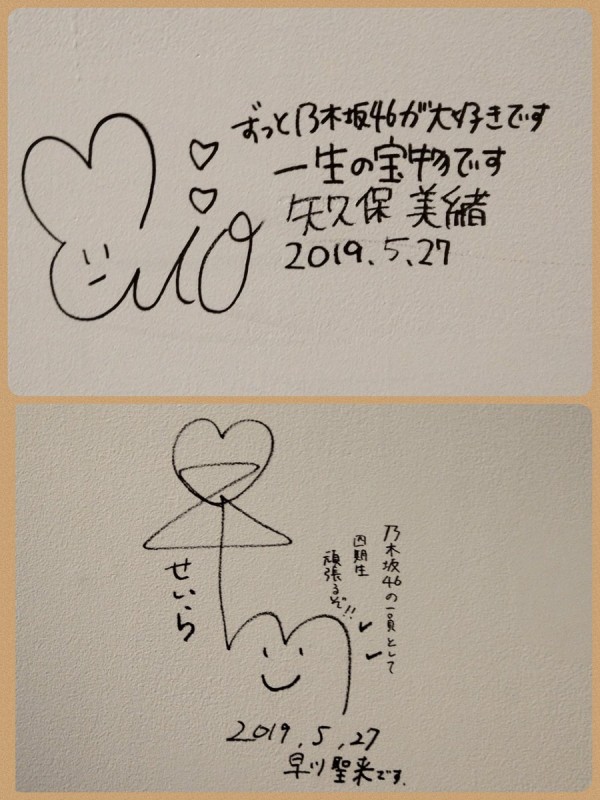 ずっと乃木坂46が大好きです
一生の宝物です
矢久保 美緒
2019.5.27
Mio
せいら
乃木坂46の一員として
四期生
頑張るぞ!!
2019.5.27
早川聖来です.